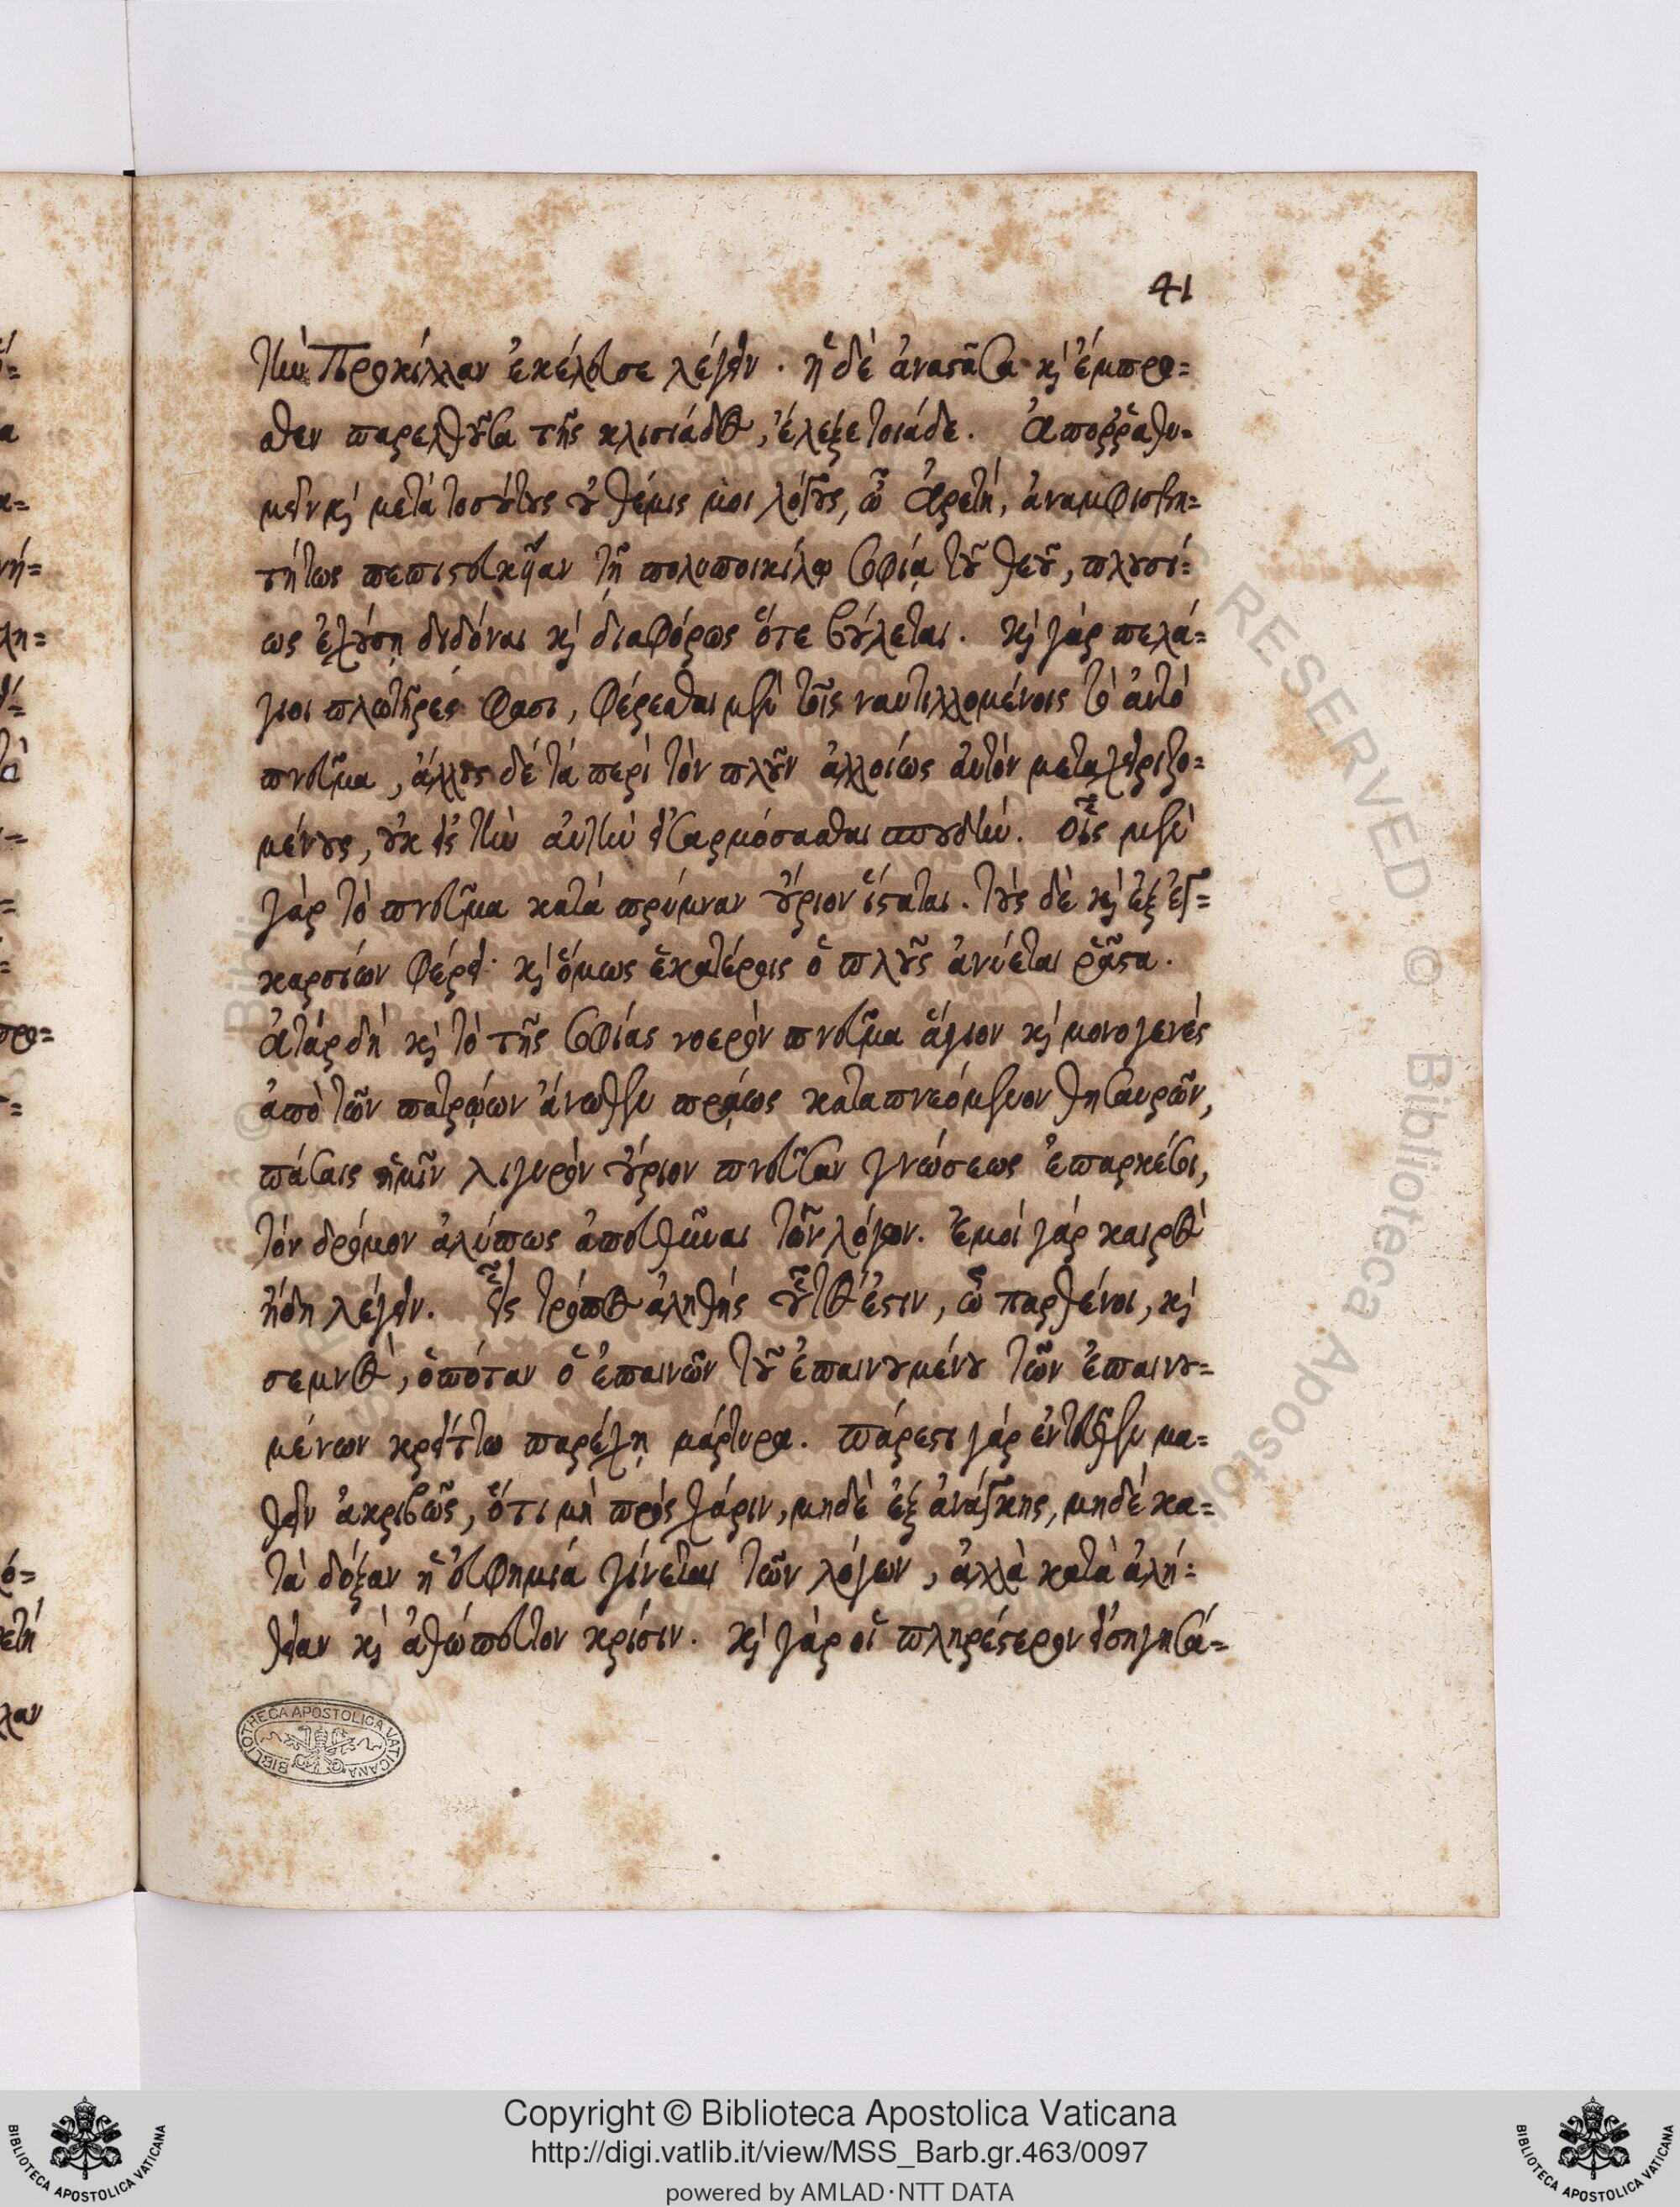 41
τὴν Προκίλλαν ἐκέλευσε λέγειν. ἡ δὲ ἀναστᾶσα καὶ ἔμπρο=
σθεν παρελθοῦσα τῆς κλισιάδος, ἔλεξε τοιάδε. Ἀπορῥᾳθυ=
μεῖν καὶ μετὰ τοσούτους οὐ θέμις μοι λόγους, ὦ Ἀρετή, ἀναμφισβη=
τήτως πεπιστευκυῖαν τῇ πολυποικίλῳ σοφίᾳ τοῦ θεοῦ, πλουσί=
ως ἐχούσῃ διδόναι καὶ διαφόρως ὅτε βούλεται. καὶ γὰρ πελά=
γιοι πλωτῆρές φασι, φέρεσθαι μὲν τοῖς ναυτιλλομένοις τὸ αὐτὸ
πνεῦμα, ἄλλους δὲ τὰ περὶ τὸν πλοῦν ἀλλοίως αὐτὸν μεταχειριζο=
μένους, οὐκ εἰς τὴν αὐτὴν εἰσαρμόσασθαι σπουδήν. οἷς μὲν
γὰρ τὸ πνεῦμα κατὰ πρύμναν οὔριον ἵσταται. τοὺς δὲ καὶ ἐξ ἐγ=
καρσίων φέρει· καὶ ὅμως ἑκατέροις ὁ πλοῦς ἀνύεται ῥᾷστα.
Ἀτὰρ δὴ καὶ τὸ τῆς σοφίας νοερὸν πνεῦμα ἅγιον καὶ μονογενὲς
ἀπὸ τῶν πατρῴων ἄνωθεν πρᾴως καταπνεόμενον θησαυρῶν,
πάσαις ἡμῖν λιγυρὸν οὔριον πνεῦσαν γνώσεως ἐπαρκέσει,
τὸν δρόμον ἀλύπως ἀπευθῦναι τῶν λόγων. Ἐμοὶ γὰρ καιρὸς
ἤδη λέγειν. Εἷς τρόπος ἀληθὴς οὗτός ἐστιν, ὦ παρθένοι, καὶ
σεμνὸς, ὁπόταν ὁ ἐπαινῶν τοῦ ἐπαινουμένου τῶν ἐπαινου=
μένων κρείττω παρέχῃ μάρτυρα. πάρεστι γὰρ ἐντεῦθεν μα=
θεῖν ἀκριβῶς, ὅτι μὴ πρὸς χάριν, μηδὲ ἐξ ἀνάγκης, μηδὲ κα=
τὰ δόξαν ἡ εὐφημία γίνεται τῶν λόγων, ἀλλὰ κατὰ ἀλή=
θειαν καὶ ἀθώπευτον κρίσιν. καὶ γὰρ οἱ πληρέστερον εἰσηγησά=
BIBLIOTHECA APOSTOLICA VATICANA
Copyright © Biblioteca Apostolica Vaticana
http://digi.vatlib.it/view/MSS_Barb.gr.463/0097
powered by AMLAD·NTT DATA